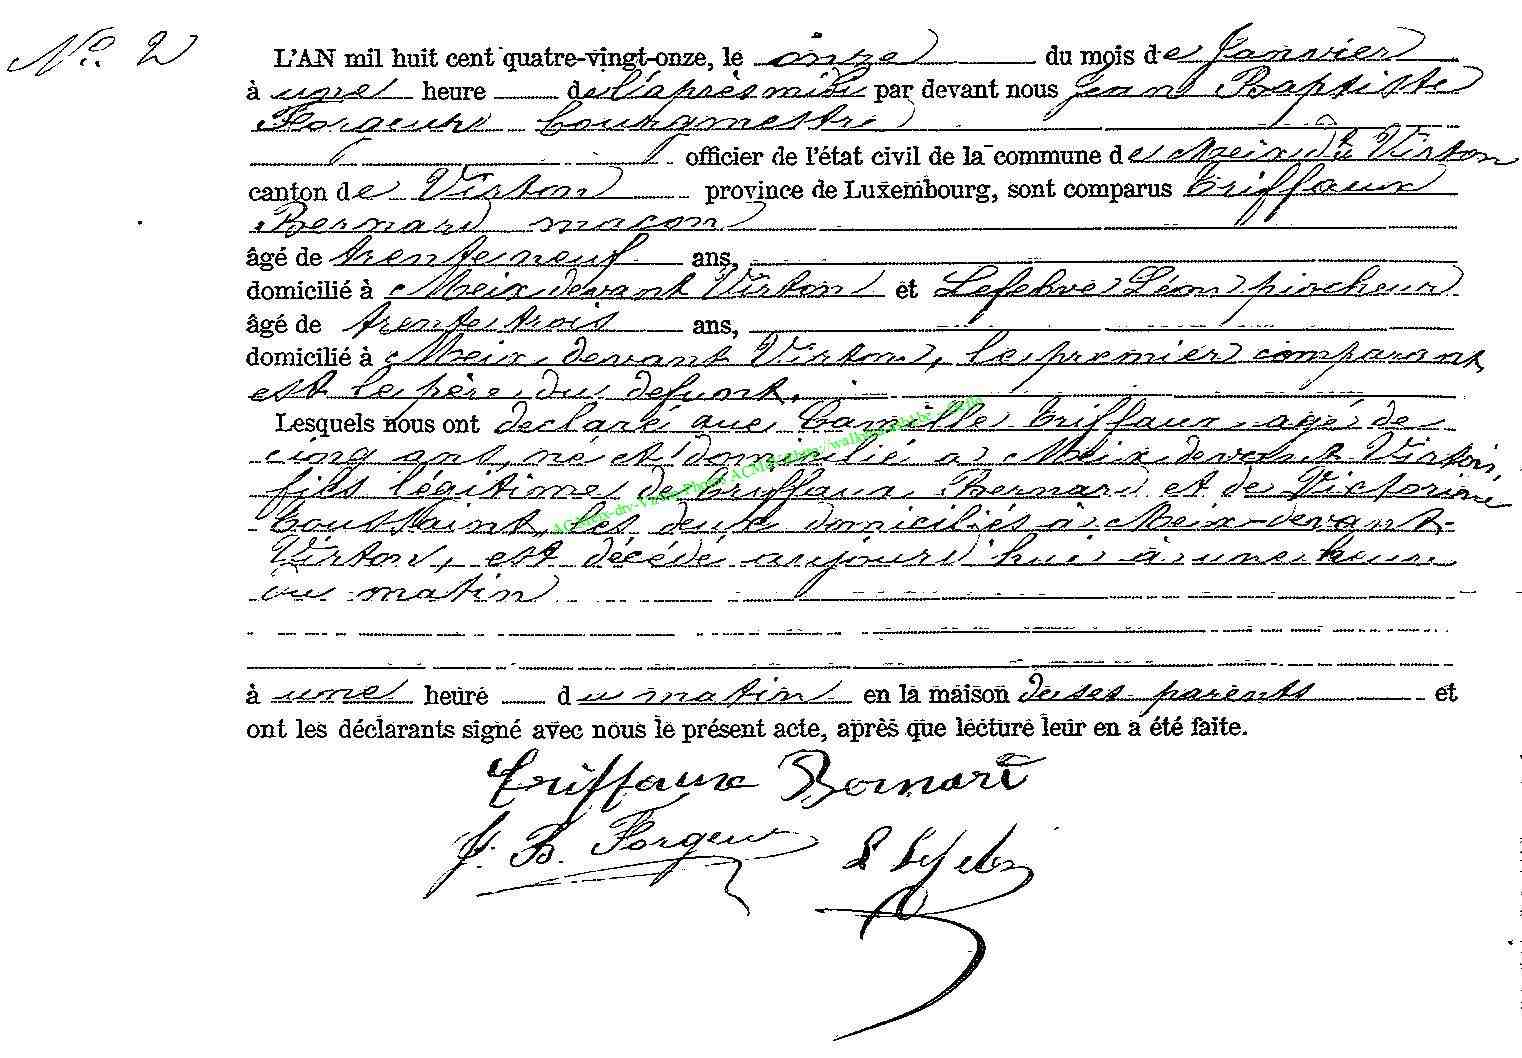 N° 2
L'AN mil huit cent quatre-vingt-onze, le onze du mois de Janvier
à une heure de l'après midi par devant nous Jean Baptiste
Forgeur Bourgmestre
officier de l'état civil de la commune de Meix dt Virton
canton de Virton province de Luxembourg, sont comparus Triffaux
Bernard maçon
âgé de trente neuf ans,
domicilié à Meix devant Virton et Lefebvre Léon piocheur
âgé de trente trois ans,
domicilié à Meix devant Virton, le premier comparant
est le père du défunt.
Lesquels nous ont déclaré que Camille Triffaux agé de
cinq ans, né et domicilié à Meix devant Virton,
fils légitime de Triffaux Bernard et de Victorine
Toussaint, les deux domiciliés à Meix-devant-
Virton, est décédé aujourd'hui à une heure
du matin
à une heure du matin en la maison de ses parents et
ont les déclarants signé avec nous le présent acte, après que lecture leur en a été faite.
Triffaux Bernard
J. B. Forgeur L Lefebv